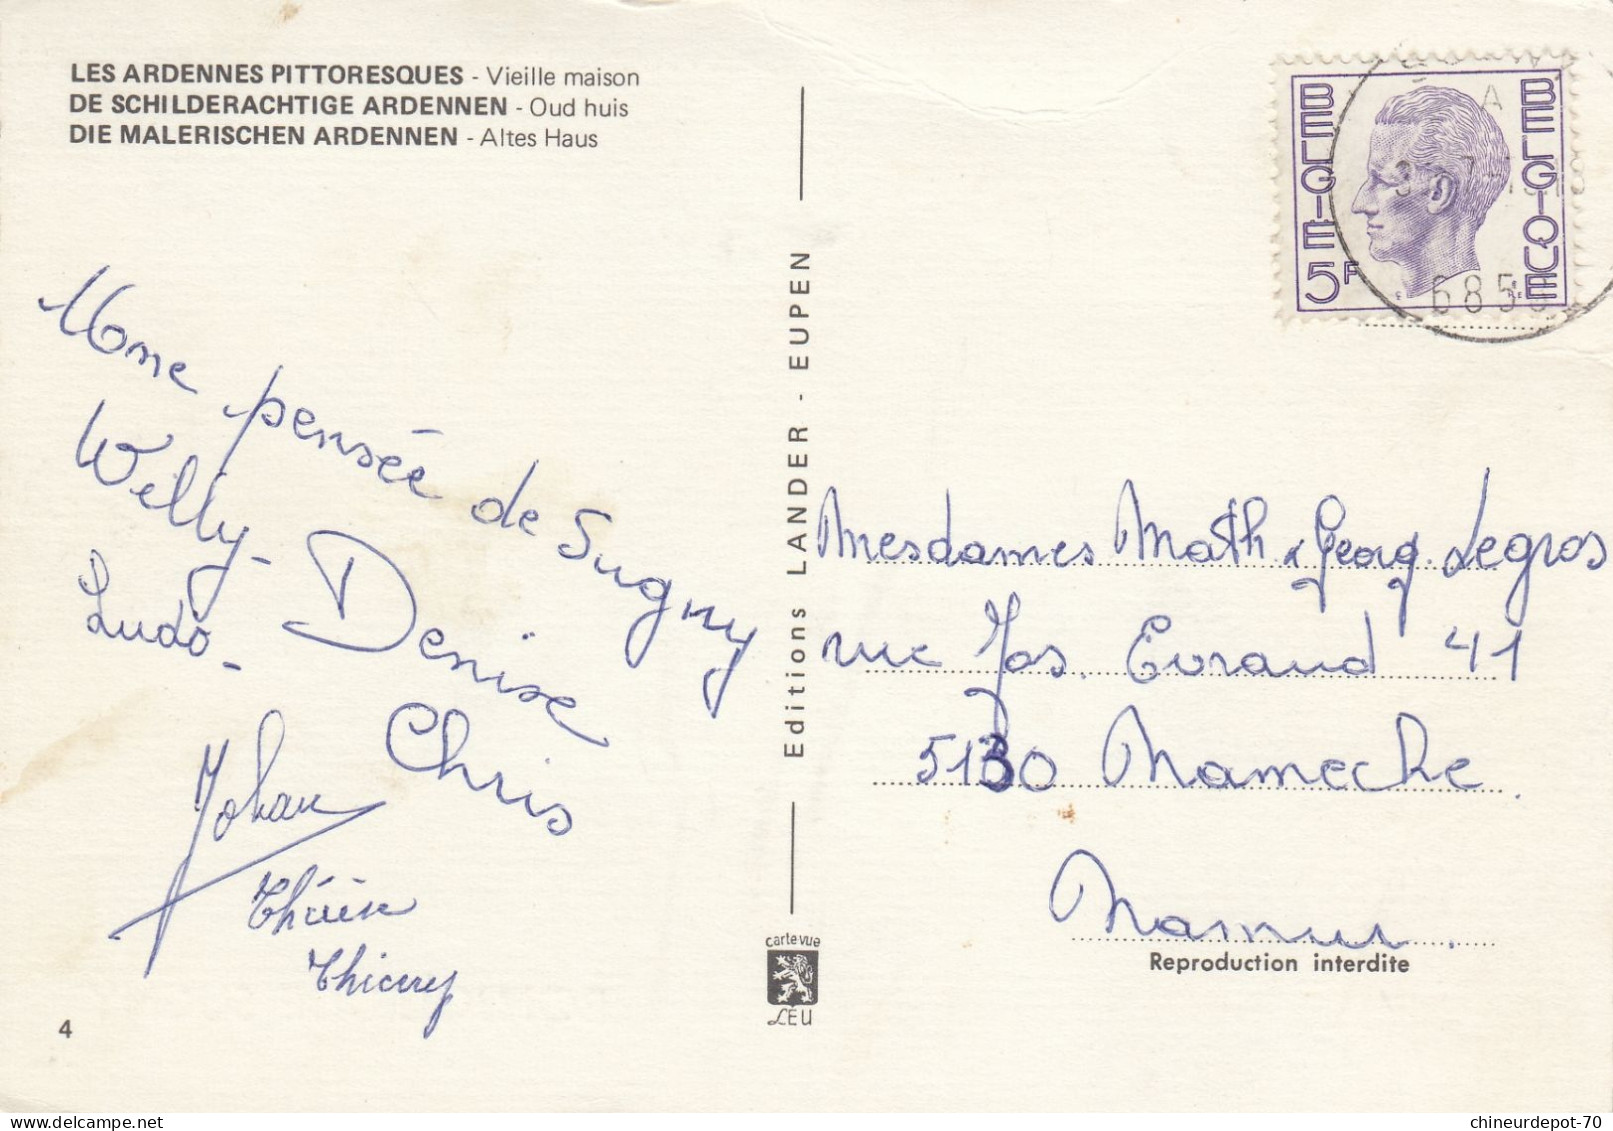 LES ARDENNES PITTORESQUES - Vieille maison
DE SCHILDERACHTIGE ARDENNEN - Oud huis
DIE MALERISCHEN ARDENNEN - Altes Haus
BELGIE
BELGIQUE
5F
A
685
pensée de Sugny
Willy - Denise
Ludo - Chris
Johan
Thierry
Editions LANDER - EUPEN
Mesdames Math & Georg. Legros
rue Jos. Evrard 41
5130 Nameche
Namur.
Reproduction interdite
carte vue
LEU
4
chineurdepot-70